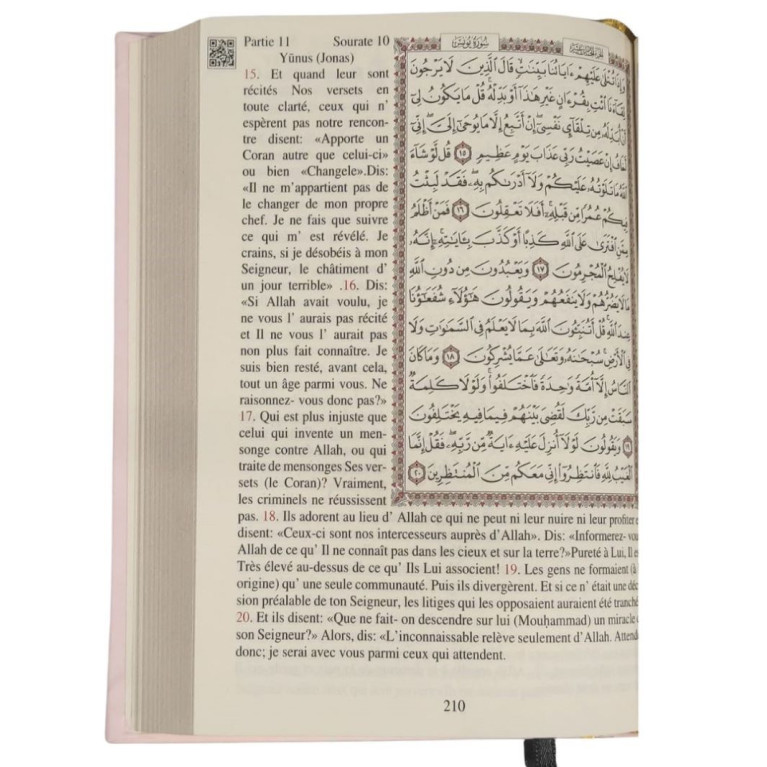 Partie 11 Sourate 10
Yūnus (Jonas)
15. Et quand leur sont
récités Nos versets en
toute clarté, ceux qui n’
espèrent pas notre rencon-
tre disent: «Apporte un
Coran autre que celui-ci»
ou bien «Changele».Dis:
«Il ne m’appartient pas de
le changer de mon propre
chef. Je ne fais que suivre
ce qui m’ est révélé. Je
crains, si je désobéis à mon
Seigneur, le châtiment d’
un jour terrible» .16. Dis:
«Si Allah avait voulu, je
ne vous l’ aurais pas récité
et Il ne vous l’ aurait pas
non plus fait connaître. Je
suis bien resté, avant cela,
tout un âge parmi vous. Ne
raisonnez- vous donc pas?»
17. Qui est plus injuste que
celui qui invente un men-
songe contre Allah, ou qui
traite de mensonges Ses ver-
sets (le Coran)? Vraiment,
les criminels ne réussissent
pas. 18. Ils adorent au lieu d’ Allah ce qui ne peut ni leur nuire ni leur profiter e
disent: «Ceux-ci sont nos intercesseurs auprès d’Allah». Dis: «Informerez- vou
Allah de ce qu’ Il ne connaît pas dans les cieux et sur la terre?»Pureté à Lui, Il e
Très élevé au-dessus de ce qu’ Ils Lui associent! 19. Les gens ne formaient (à
origine) qu’ une seule communauté. Puis ils divergèrent. Et si ce n’ était une déc
sion préalable de ton Seigneur, les litiges qui les opposaient auraient été tranché
20. Et ils disent: «Que ne fait- on descendre sur lui (Mouḥammad) un miracle
son Seigneur?» Alors, dis: «L’inconnaissable relève seulement d’Allah. Attend
donc; je serai avec vous parmi ceux qui attendent.
سورة يونس
وَإِذَا تُتْلَىٰ عَلَيْهِمْ ءَايَاتُنَا بَيِّنَٰتٍ قَالَ ٱلَّذِينَ لَا يَرْجُونَ
لِقَآءَنَا ٱئْتِ بِقُرْءَانٍ غَيْرِ هَٰذَآ أَوْ بَدِّلْهُ قُلْ مَا يَكُونُ لِىٓ
أَنْ أُبَدِّلَهُۥ مِن تِلْقَآئِ نَفْسِىٓ إِنْ أَتَّبِعُ إِلَّا مَا يُوحَىٰٓ إِلَىَّ إِنِّىٓ
أَخَافُ إِنْ عَصَيْتُ رَبِّى عَذَابَ يَوْمٍ عَظِيمٍ ١٥ قُل لَّوْ شَآءَ
ٱللَّهُ مَا تَلَوْتُهُۥ عَلَيْكُمْ وَلَآ أَدْرَىٰكُم بِهِۦ فَقَدْ لَبِثْتُ
فِيكُمْ عُمُرًا مِّن قَبْلِهِۦٓ أَفَلَا تَعْقِلُونَ ١٦ فَمَنْ أَظْلَمُ
مِمَّنِ ٱفْتَرَىٰ عَلَى ٱللَّهِ كَذِبًا أَوْ كَذَّبَ بِـَٔايَٰتِهِۦٓ إِنَّهُۥ
لَا يُفْلِحُ ٱلْمُجْرِمُونَ ١٧ وَيَعْبُدُونَ مِن دُونِ ٱللَّهِ
مَا لَا يَضُرُّهُمْ وَلَا يَنفَعُهُمْ وَيَقُولُونَ هَٰٓؤُلَآءِ شُفَعَٰٓؤُنَا
عِندَ ٱللَّهِ قُلْ أَتُنَبِّـُٔونَ ٱللَّهَ بِمَا لَا يَعْلَمُ فِى ٱلسَّمَٰوَٰتِ وَلَا
فِى ٱلْأَرْضِ سُبْحَٰنَهُۥ وَتَعَٰلَىٰ عَمَّا يُشْرِكُونَ ١٨ وَمَا كَانَ
ٱلنَّاسُ إِلَّآ أُمَّةً وَٰحِدَةً فَٱخْتَلَفُوا۟ وَلَوْلَا كَلِمَةٌ
سَبَقَتْ مِن رَّبِّكَ لَقُضِىَ بَيْنَهُمْ فِيمَا فِيهِ يَخْتَلِفُونَ
١٩ وَيَقُولُونَ لَوْلَآ أُنزِلَ عَلَيْهِ ءَايَةٌ مِّن رَّبِّهِۦ فَقُلْ إِنَّمَا
ٱلْغَيْبُ لِلَّهِ فَٱنتَظِرُوٓا۟ إِنِّى مَعَكُم مِّنَ ٱلْمُنتَظِرِينَ ٢٠
210